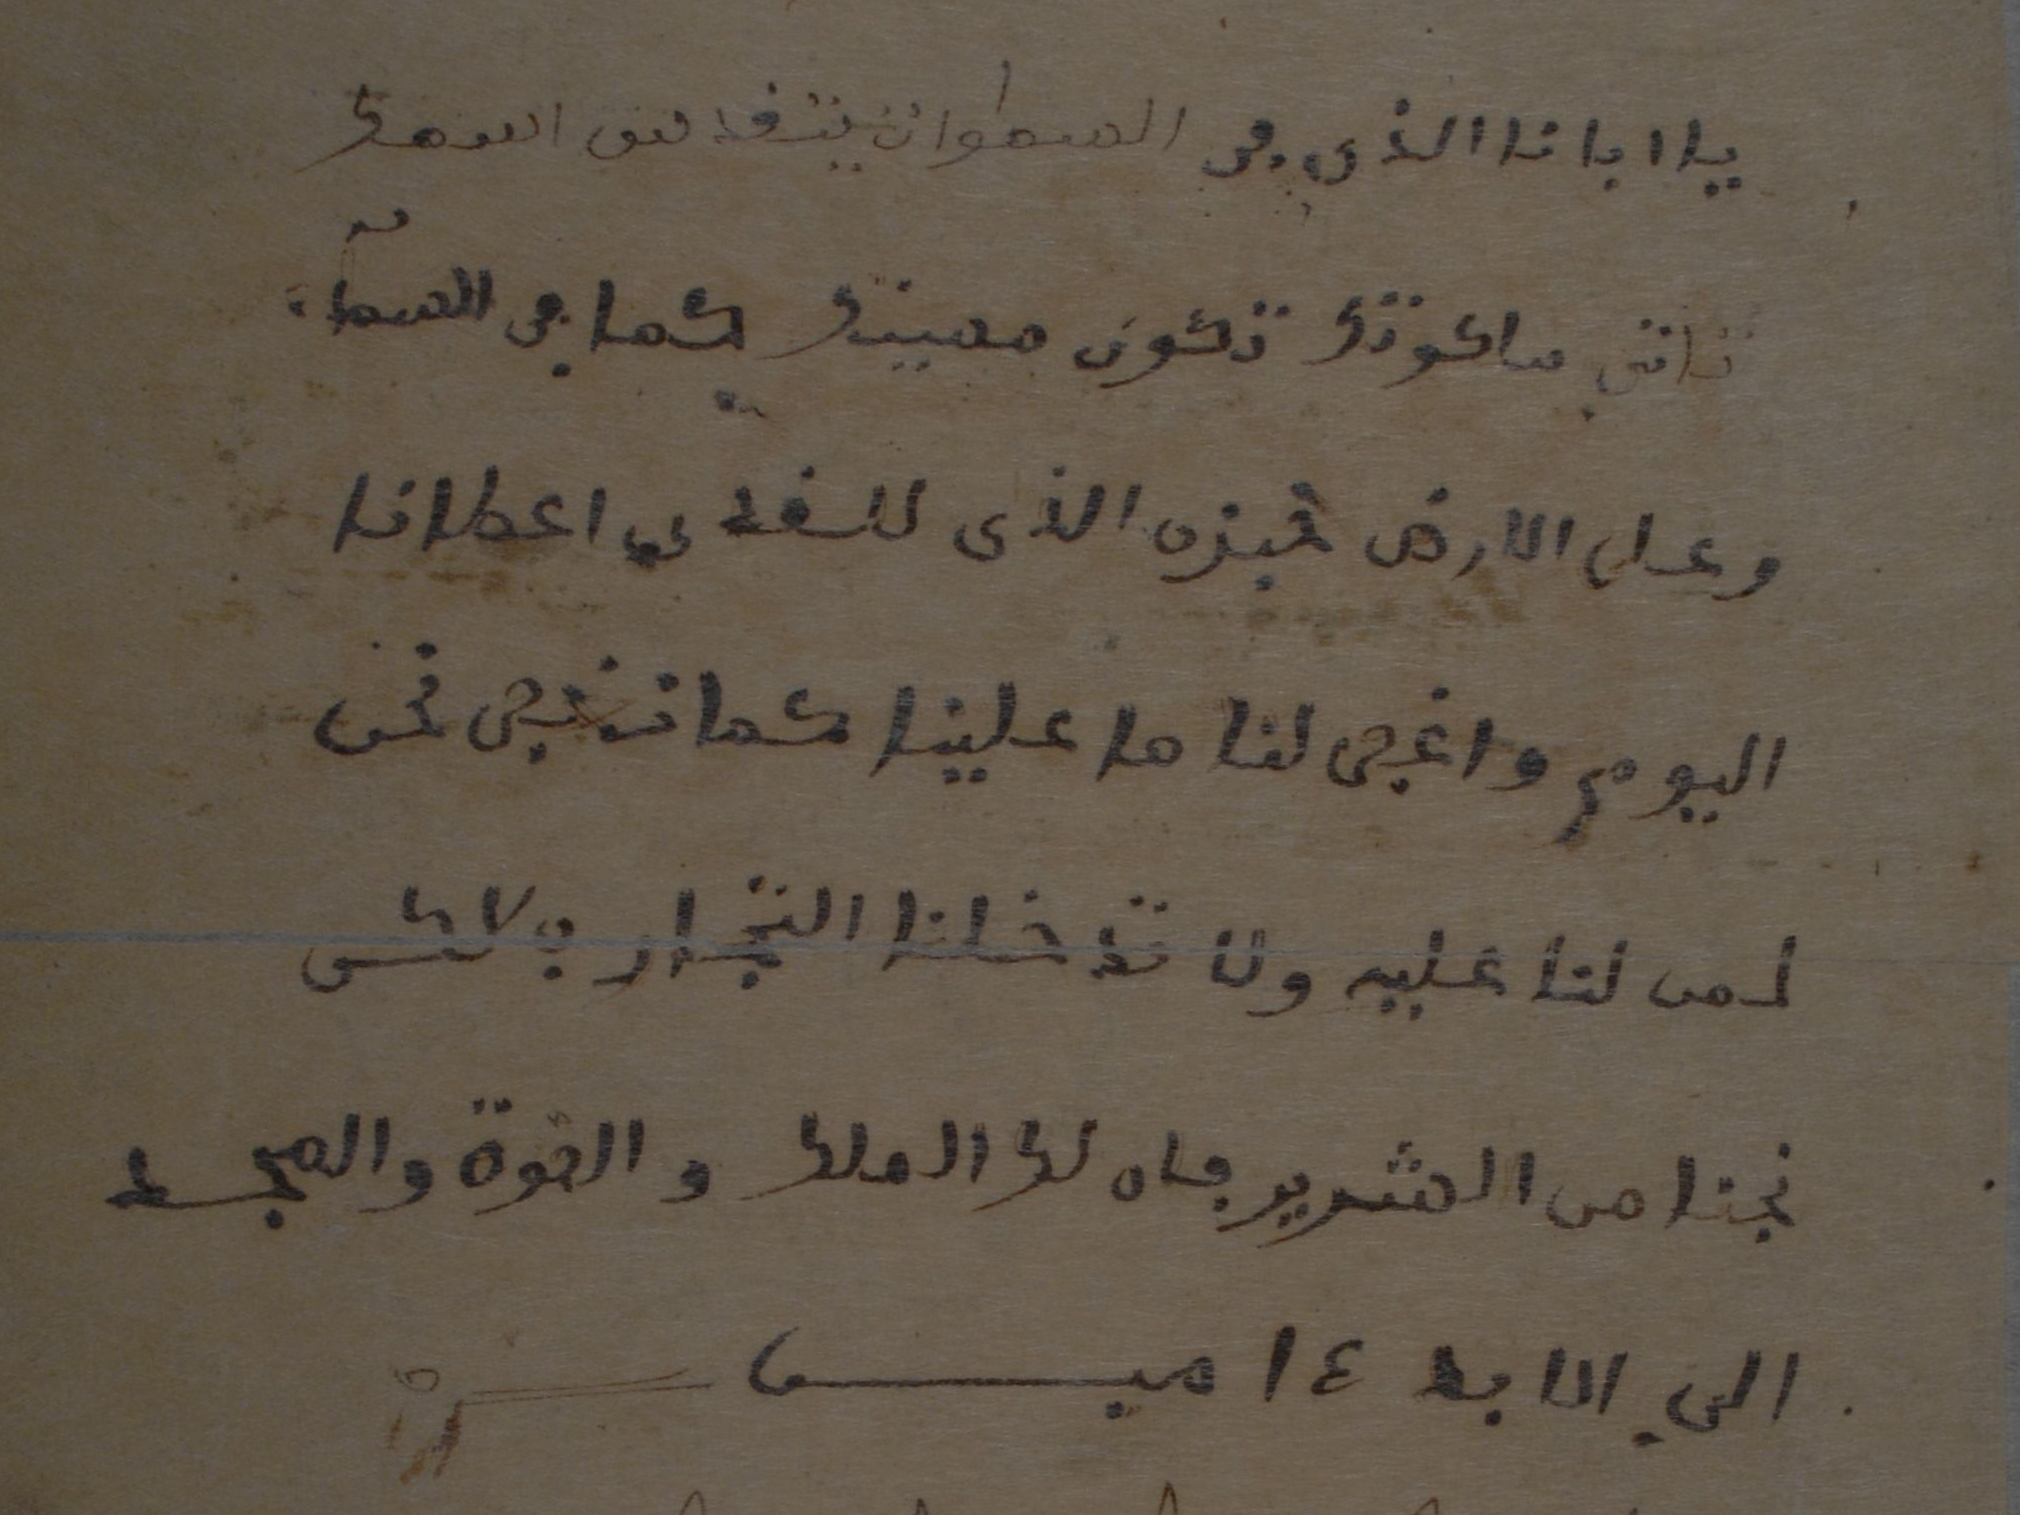 يا ابانا الذي في السموات يتقدس اسمك
تاتي ملكوتك تكون مسيتك كما في السماء
وعلى الارض خبزه الذي للغد اعطانا
اليوم واغفى لنا ما علينا كما نغفى نحن
لمن لنا عليه ولا تدخلنا التجار
نجنا من الشرير فان لك الملك والقوة والمجد
الي الابد ءامين